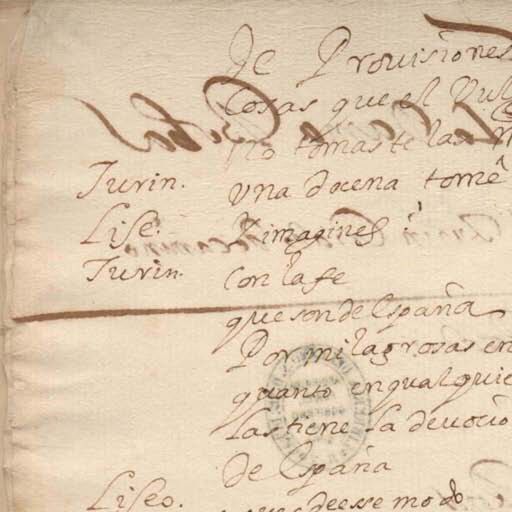 de Prouisiones
cosas que el Vul
no tomaste las
Turin. Vna docena tomè
Lise. Y imagines?
Turin. Con la fe
que son de España
Por milagrosas en
quanto en qualquie
las tiene la deuocio
de España
Liseo. de esse modo